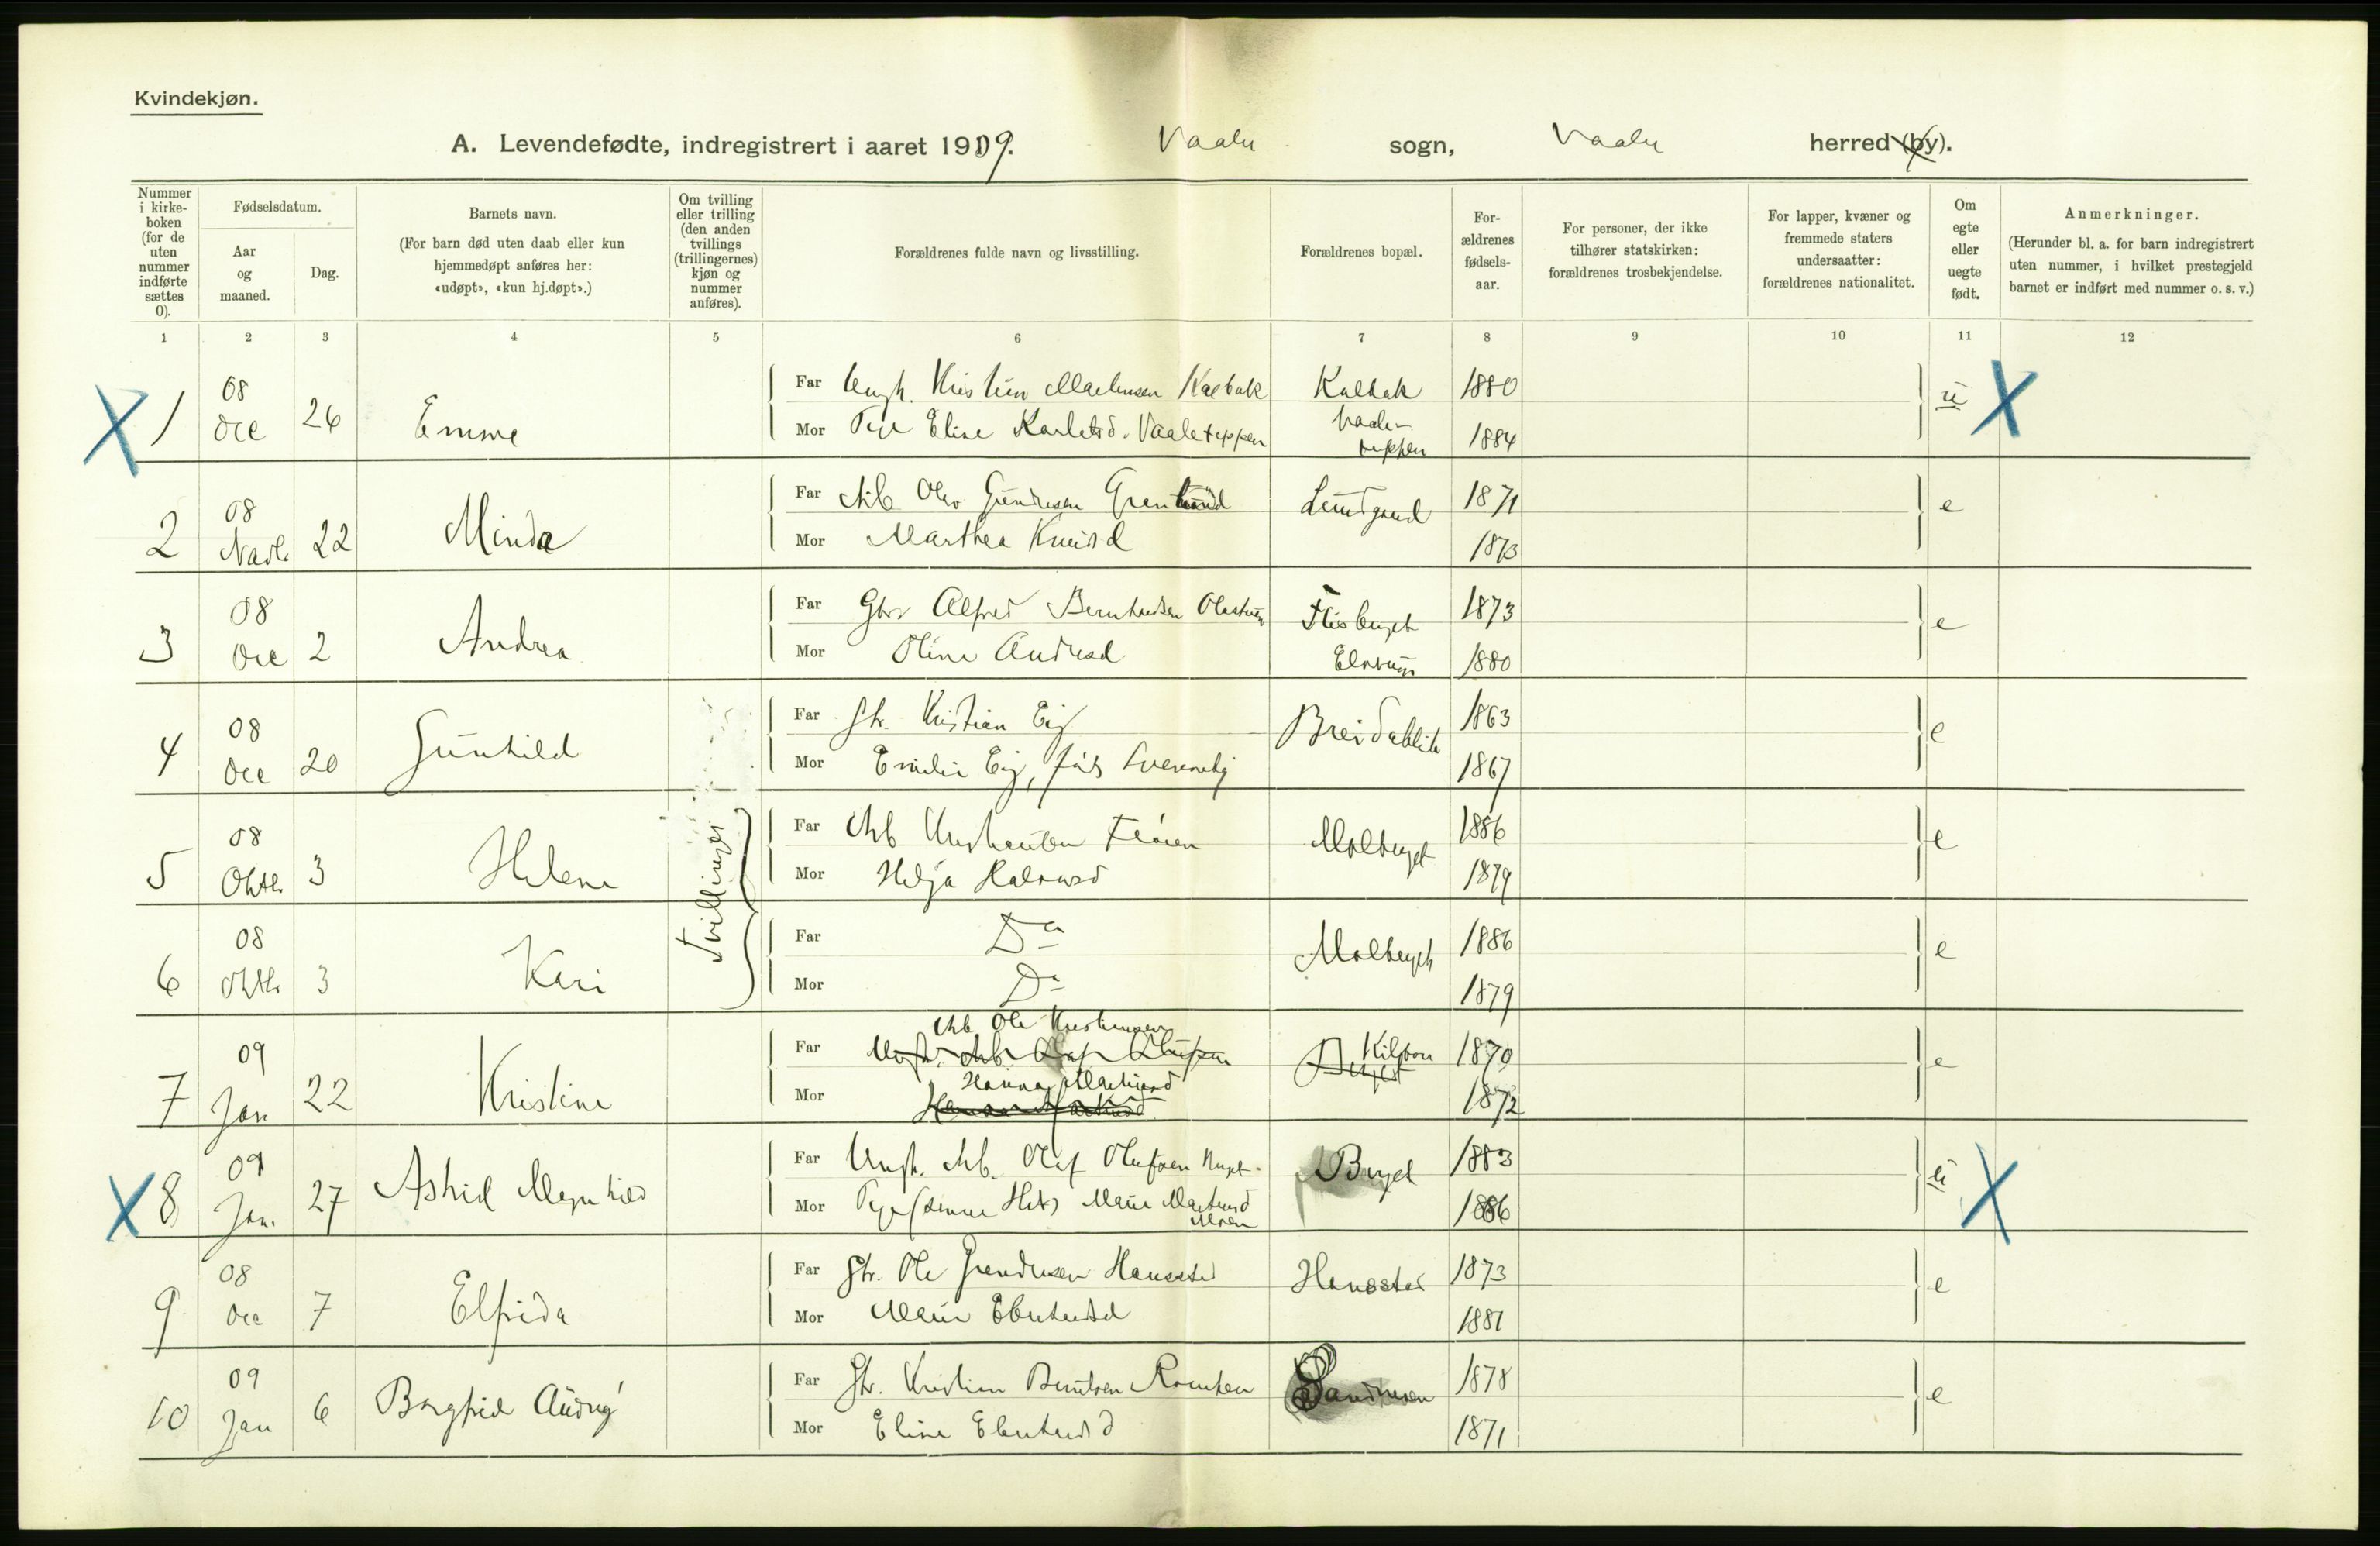 Kvindekjøn.
A. Levendefødte, indregistrert i aaret 1909. Vaaler sogn, Vaaler herred (by).
Nummer i kirke-boken (for de uten nummer indførte sættes 0).
Fødselsdatum.
Aar og maaned.
Dag.
Barnets navn.
(For barn død uten daab eller kun hjemmedøpt anføres her: «udøpt», «kun hj.døpt».)
Om tvilling eller trilling (den anden tvillings (trillingernes) kjøn og nummer anføres).
Forældrenes fulde navn og livsstilling.
Forældrenes bopæl.
For-ældrenes fødsels-aar.
For personer, der ikke tilhører statskirken: forældrenes trosbekjendelse.
For lapper, kvæner og fremmede staters undersaatter: forældrenes nationalitet.
Om egte eller uegte født.
Anmerkninger.
(Herunder bl. a. for barn indregistrert uten nummer, i hvilket prestegjeld barnet er indført med nummer o. s. v.)
1 2 3 4 5 6 7 8 9 10 11 12
X 1 08 Dec 26 Emma
Far Ungk. Kristian Kalbak Kalbak 1880 u X
Mor Pige Elise Vaaleteppen Vaaleteppen 1884
2 08 22 Minda
Far Arb Gundersen Lundgaard 1871 e
Mor Marthea Knudsd 1873
3 08 Dec 2 Andrea
Far Gbr Alfred Bernhardsen Flisberget 1873 e
Mor Oline Andersd Elverum 1880
4 08 Dec 20 Gunhild
Far Gbr. Kristian Eig Breidablik 1863 e
Mor Emilie Eig, født Svenneby 1867
5 08 Oktb 3 Helene Tvillinger
Far Arb Kristiansen Molberget 1886 e
Mor Helga Halvorsd 1879
6 08 Oktb 3 Kari
Far Do Molberget 1886 e
Mor Do 1879
7 09 Jan 22 Kristine
Far Arb. Ole Kristiansen Kilson 1870 e
Mor Hanna Martinsd 1872
X 8 09 Jan. 27 Astrid Magnhild
Far Ungk. Arb. Olaf Olufsen Berget 1883 u X
Mor Pige Marie Martinsd Moen 1886
9 08 Dec 7 Elfrida
Far Gbr. Ole Gundersen Hansstad Hansstad 1873 e
Mor Marie Eberhardsd 1881
10 09 Jan 6 Borghild Audny
Far Gbr. Kristian Berntsen Sandmoen 1878 e
Mor Eline Eberhardsd 1871